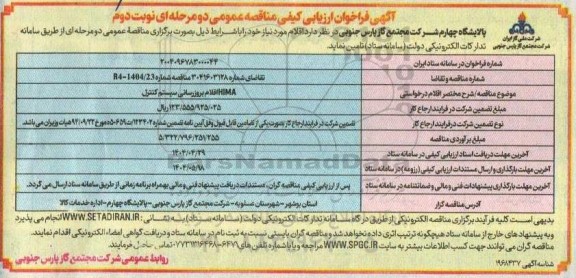 آگهی فراخوان ارزیابی کیفی مناقصه عمومی دو مرحله ای نوبت دوم
شرکت ملی گاز ایران
شرکت مجتمع گاز پارس جنوبی
پالایشگاه چهارم شرکت مجتمع گاز پارس جنوبی در نظر دارد اقلام مورد نیاز خود را با شرایط ذیل بصورت برگزاری مناقصه عمومی دو مرحله ای از طریق سامانه
تدارکات الکترونیکی دولت (سامانه ستاد) تامین نماید.
شماره فراخوان در سامانه ستاد ایران
شماره مناقصه و تقاضا تقاضای شماره ۳۰۴۱۶۰۳۱۲۸ مناقصه شماره R4-1404/23
موضوع مناقصه/شرح مختصر اقلام درخواستی اقلام بروزرسانی سیستم کنترل HIMA
مبلغ تضمین شرکت در فرایند ارجاع کار ریال
نوع تضمین شرکت در فرایند ارجاع کار تضمین شرکت در فرایند ارجاع کار بصورت یکی از تضامین قابل قبول وفق آیین نامه تضمین شماره ۱۲۳۴۰۲/ت۵۰۶۵۹ه مورخ ۹۴/۰۹/۲۲ هیات وزیران می باشد.
مبلغ برآوردی مناقصه
آخرین مهلت دریافت اسناد ارزیابی کیفی در سامانه ستاد ۱۴۰۴/۰۴/۲۹
آخرین مهلت بارگذاری و ارسال مستندات ارزیابی کیفی (رزومه) در سامانه ستاد
آخرین مهلت بارگذاری پیشنهادات فنی و مالی و ضمانتنامه در سامانه ستاد پس از ارزیابی کیفی مناقصه گران، مستندات دریافت پیشنهاد فنی و مالی بهمراه برنامه زمانی از طریق سامانه ستاد ارسال می گردد.
آدرس مناقصه گزار استان بوشهر - شهرستان عسلویه - شرکت مجتمع گاز پارس جنوبی - پالایشگاه چهارم - اداره خدمات کالا
بدیهی است کلیه فرآیند برگزاری مناقصه الکترونیکی از طریق درگاه سامانه تدارکات الکترونیکی دولت (سامانه ستاد) به نشانی: WWW.SETADIRAN.IR انجام می پذیرد
و به پیشنهاد های خارج از سامانه ستاد هیچگونه ترتیب اثری داده نخواهد شد و مناقصه گران بایستی نسبت به ثبت نام در سامانه ستاد و دریافت گواهی امضاء الکترونیکی اقدام نمایند.
مناقصه گران می توانند جهت کسب اطلاعات بیشتر به سایت WWW.SPGC.IR مراجعه و یا با شماره تلفن های تماس حاصل فرمایند.
شناسه آگهی ۱۹۶۸۴۳۷
روابط عمومی شرکت مجتمع گاز پارس جنوبی
ParsNamadData